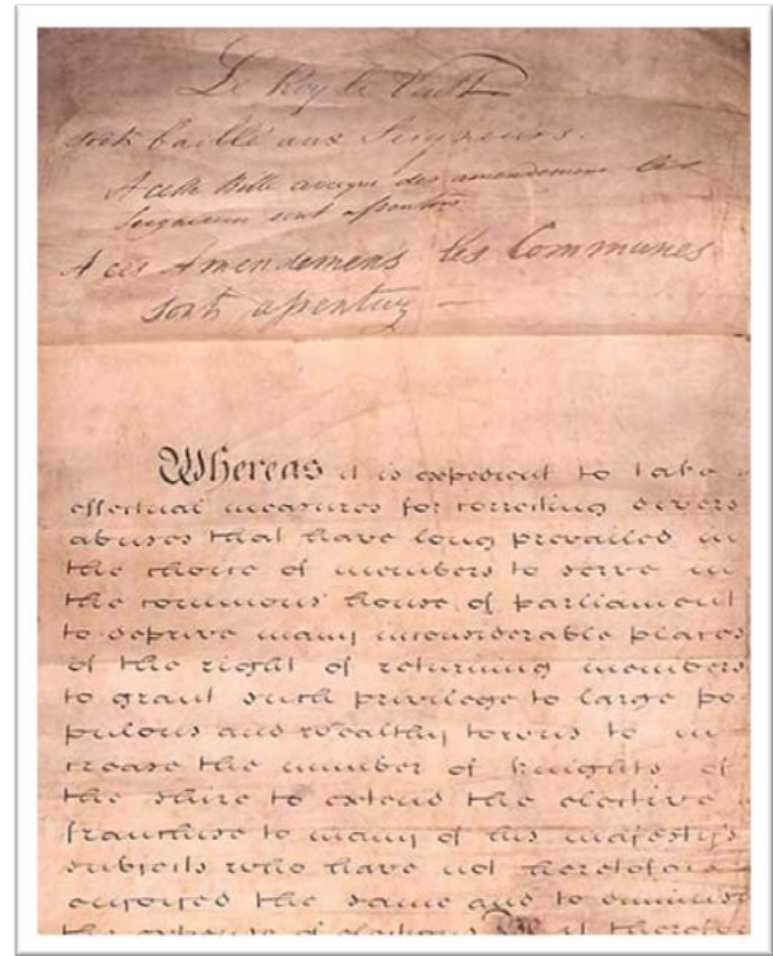 Le Roy le Veult
soit baillé aux Seigneurs.
A ceste Bille avecque des amendemens les
Seigneurs sont assentus
A ces Amendemens les Communes
sont assentuz —
Whereas it is expedient to take
effectual measures for correcting divers
abuses that have long prevailed in
the choice of members to serve in
the commons house of parliament
to deprive many inconsiderable places
of the right of returning members
to grant such privilege to large po-
pulous and wealthy towns to in-
crease the number of knights of
the shire to extend the elective
franchise to many of his majesty's
subjects who have not heretofore
enjoyed the same and to diminish
the expense of elections Be it therefore